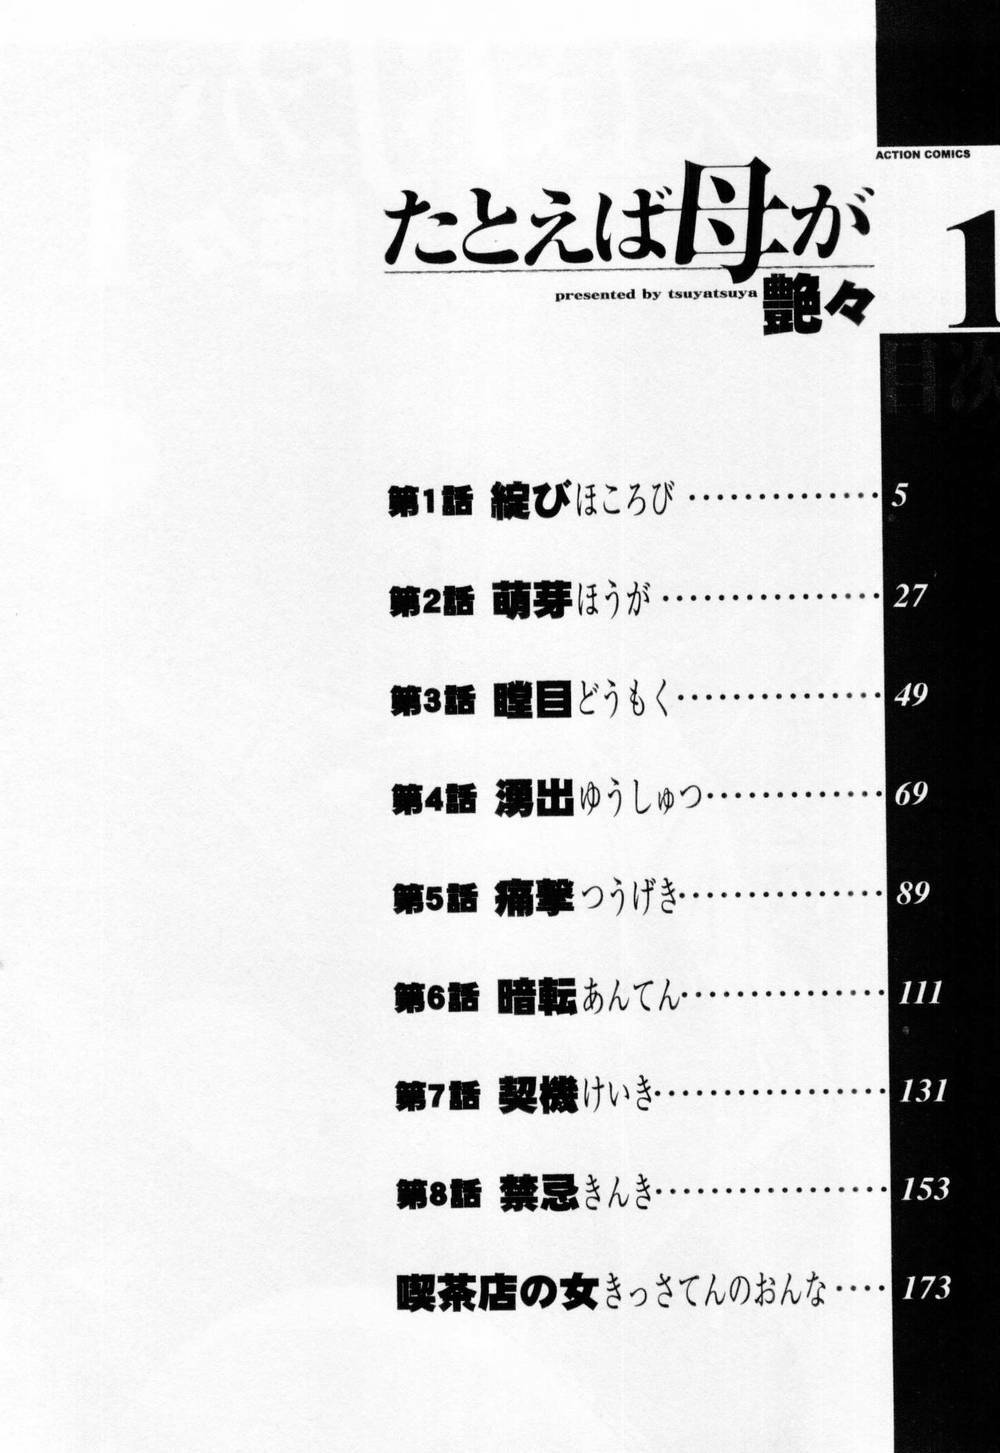 ACTION COMICS
たとえば母が
1
presented by tsuyatsuya 艶々
目次
第1話 綻びほころび ・・・・・・・・・・・・・・ 5
第2話 萌芽ほうが ・・・・・・・・・・・・・・・・ 27
第3話 瞠目どうもく・・・・・・・・・・・・・・・ 49
第4話 湧出ゆうしゅつ・・・・・・・・・・・・・ 69
第5話 痛撃つうげき・・・・・・・・・・・・・・・ 89
第6話 暗転あんてん・・・・・・・・・・・・・・・ 111
第7話 契機けいき・・・・・・・・・・・・・・・・・ 131
第8話 禁忌きんき・・・・・・・・・・・・・・・・・ 153
喫茶店の女きっさてんのおんな・・・・ 173